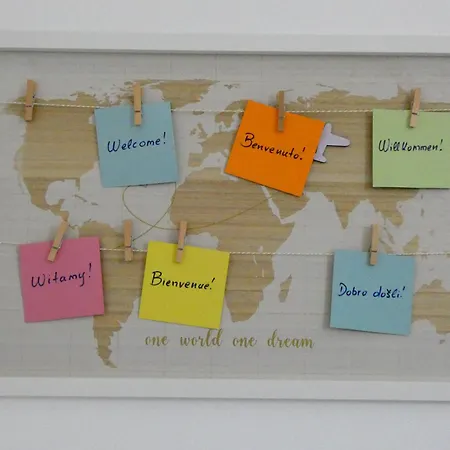 Welcome!
Benvenuto!
Willkommen!
Witamy!
Bienvenue!
Dobro došli!
one world one dream